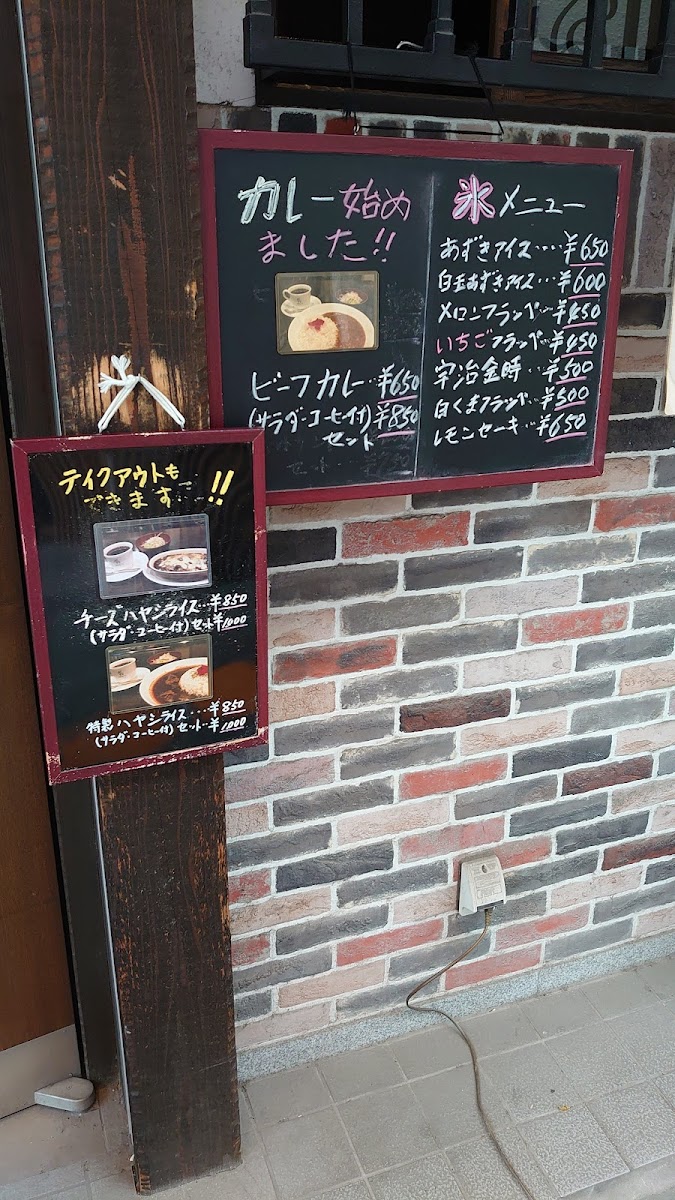 カレー始め
ました!!
ビーフカレー‥¥650
(サラダ・コーヒー付)‥¥850
セット
氷メニュー
あずきアイス‥‥¥650
白玉あずきアイス‥‥¥600
メロンフラッペ‥¥450
いちごフラッペ‥¥450
宇治金時‥¥500
白くまフラッペ‥¥500
レモンセーキ‥¥650
テイクアウトも
できます‥!!
チーズハヤシライス‥‥¥850
(サラダ・コーヒー付)セット¥1,000
特製ハヤシライス‥‥¥850
(サラダ・コーヒー付)セット‥¥1,000